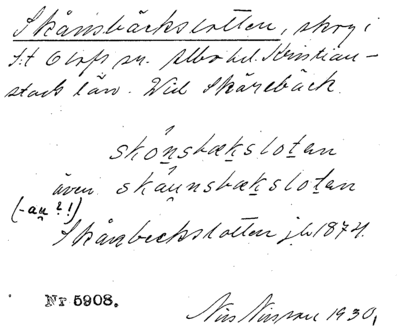 Skånsbäckslotten, skog i
S:t Olofs sn. Albo hd. Kristian-
stads län. Vid Skånebäck.
skånsbækslotan
även skåunsbækslotan
(-au?!)
Skånbeckslotten jb 1874.
Nr 5908.
Nils Nilsson 1930,